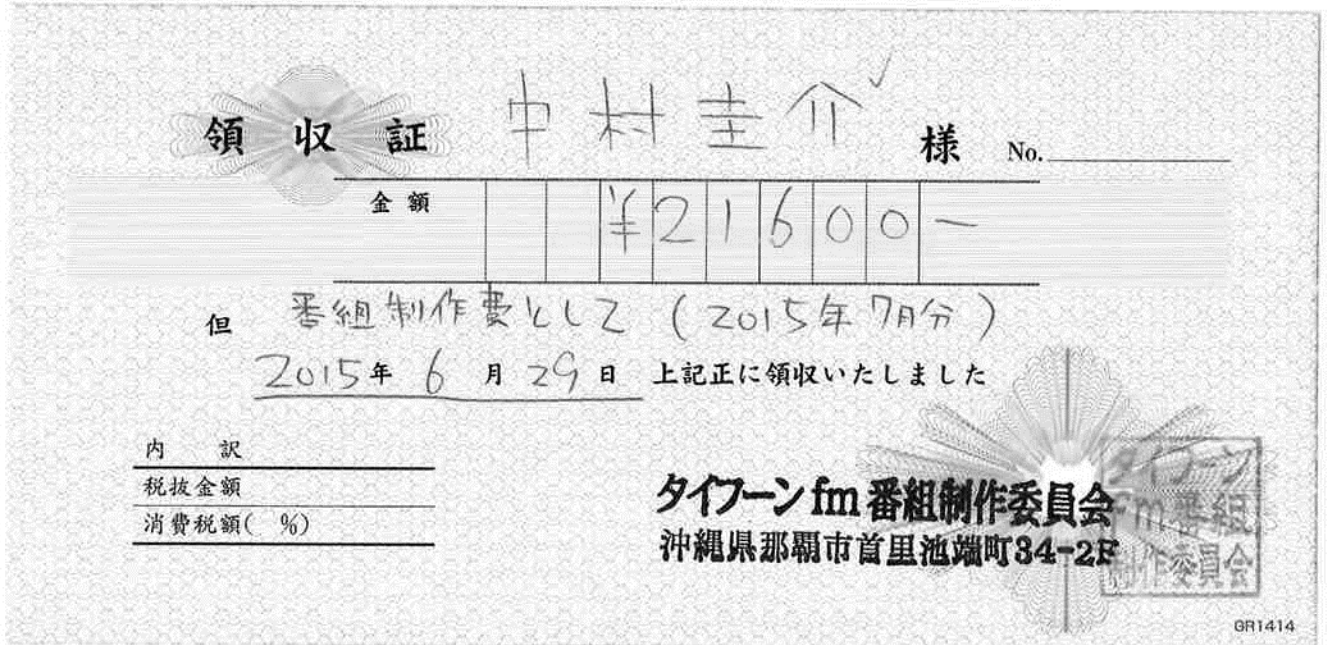 領収証 中村圭介 様 No.
金額 ¥21600-
但 番組制作費として (2015年7月分)
2015年 6月 29日 上記正に領収いたしました
内訳
税抜金額
消費税額( %)
タイフーンfm番組制作委員会
沖縄県那覇市首里池端町34-2F
タイフーン
fm番組
制作委員会
GR1414